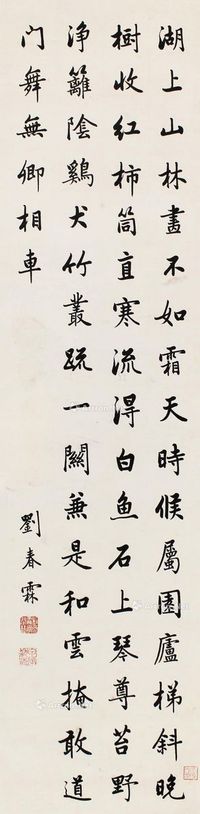 湖上山林畫不如霜天時候屬園廬梯斜晚
樹收紅柿筒直寒流得白魚石上琴尊苔野
淨籬陰鷄犬竹叢疏一關兼是和雲掩敢道
门舞無卿相車
劉春霖